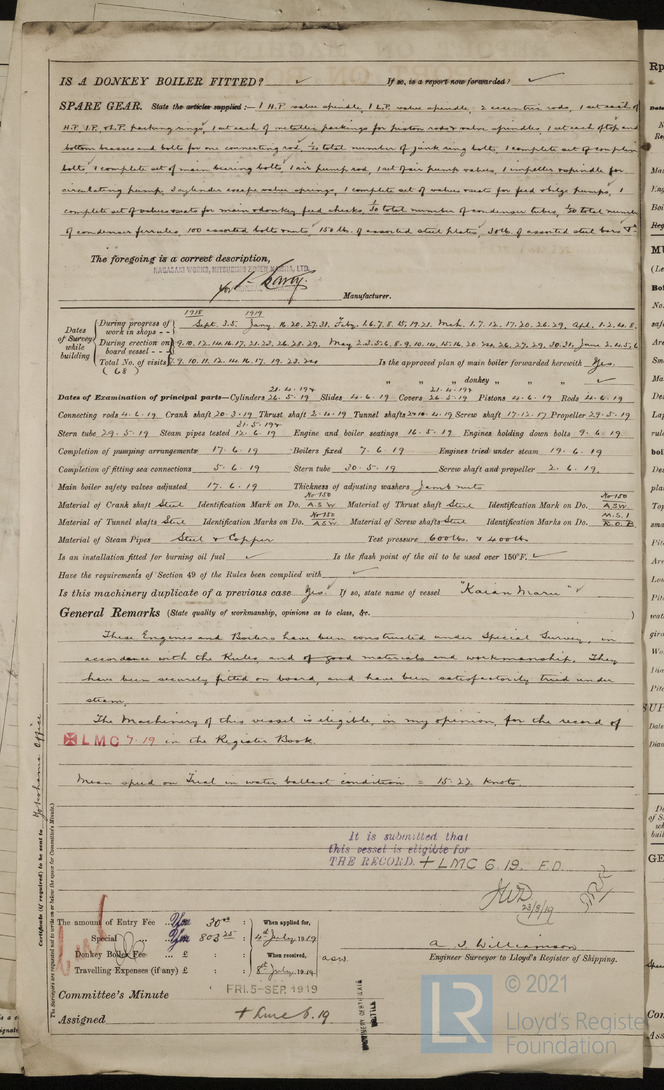 IS A DONKEY BOILER FITTED? ✓ If so, is a report now forwarded? ✓
SPARE GEAR. State the articles supplied:— 1 H.P. valve spindle, 1 L.P. valve spindle, 2 eccentric rods, 1 set each of
H.P. I.P. & L.P. packing rings, 1 set each of metallic packings for piston rods & valve spindles, 1 set each of top and
bottom brasses and bolts for one connecting rod, 1/20 total number of junk ring bolts, 1 complete set of coupling
bolts, 1 complete set of main bearing bolts, 1 air pump rod, 1 set of air pump valves, 1 impeller & spindle for
circulating pump, 3 cylinder escape valve springs, 1 complete set of valves & seats for feed & bilge pumps, 1
complete set of valves & seats for main & donkey feed checks, 1/50 total number of condenser tubes, 1/50 total number
of condenser ferrules, 100 assorted bolts & nuts, 150 lb. of assorted steel plates, 30 lb. of assorted steel bars &c
The foregoing is a correct description,
NAGASAKI WORKS, MITSUBISHI ZOSEN KAISHA, LTD.
Manufacturer.
1918 1919
Dates of Survey while building
During progress of work in shops - - Sept. 3.5. Jany. 16.20.27.31. Feby. 1.6.7.8.15.19.21. Mch. 1.7.12.17.20.26.29. Apl. 1.2.4.8.
During erection on board vessel - - - 9.10.12.14.16.17.21.23.26.28.29. May 2.3.5.6.8.9.10.14.15.16.20. 26.27.29.30.31. June 2.4.5.6
Total No. of visits 7.9.10.11.12.14.16.17.19.23.
(68)
Is the approved plan of main boiler forwarded herewith Yes.
" " " donkey " " " ✓
Dates of Examination of principal parts—Cylinders 21.4.19 & 26.5.19 Slides 4.3.19 Covers 21.4.19 & 26.5.19 Pistons 4.6.19 Rods 4.6.19
Connecting rods 4.6.19 Crank shaft 20.3.19 Thrust shaft 2.4.19 Tunnel shafts 4.19 Screw shaft 17.12.17 Propeller 29.5.19
Stern tube 29.5.19 Steam pipes tested 31.5.19 & 12.6.19 Engine and boiler seatings 16.5.19 Engines holding down bolts 9.6.19
Completion of pumping arrangements 17.6.19 Boilers fixed 7.6.19 Engines tried under steam 19.6.19
Completion of fitting sea connections 5.6.19 Stern tube 30.5.19 Screw shaft and propeller 2.6.19.
Main boiler safety valves adjusted 17.6.19 Thickness of adjusting washers Jamb nuts
Material of Crank shaft Steel Identification Mark on Do. No 150 A.S.W. Material of Thrust shaft Steel Identification Mark on Do. No 150 A.S.W.
Material of Tunnel shafts Steel Identification Marks on Do. No 150 A.S.W. Material of Screw shafts Steel Identification Marks on Do. M.S.I R.O.B
Material of Steam Pipes Steel & Copper Test pressure 600 lbs. & 400 lb
Is an installation fitted for burning oil fuel ✓ Is the flash point of the oil to be used over 150°F. ✓
Have the requirements of Section 49 of the Rules been complied with ✓
Is this machinery duplicate of a previous case Yes. If so, state name of vessel "Kaian Maru" ✓
General Remarks (State quality of workmanship, opinions as to class, &c. )
These Engines and Boilers have been constructed under Special Survey, in
accordance with the Rules, and of good materials and workmanship. They
have been securely fitted on board, and have been satisfactorily tried under
steam.
The Machinery of this vessel is eligible, in my opinion, for the record of
✠ LMC 7.19 in the Register Book.
Mean speed on Trial in water ballast condition = 15.22 knots.
It is submitted that
this vessel is eligible for
THE RECORD. + LMC 6.19. F.D.
23/9/19
Certificate (if required) to be sent to Yokohama Office
The Surveyors are requested not to write on or below the space for Committee's Minute.
The amount of Entry Fee .. Yen 30.00 : When applied for,
Special .. Yen 803.25 : 4th July 1919
Donkey Boiler Fee .. £ : : When received,
Travelling Expenses (if any) £ : : 8th July 1919
a.s.w.
A. S. Williamson
Engineer Surveyor to Lloyd's Register of Shipping.
Committee's Minute FRI. 5-SEP. 1919
Assigned + Lmc 6.19
© 2021
Lloyd's Register
Foundation